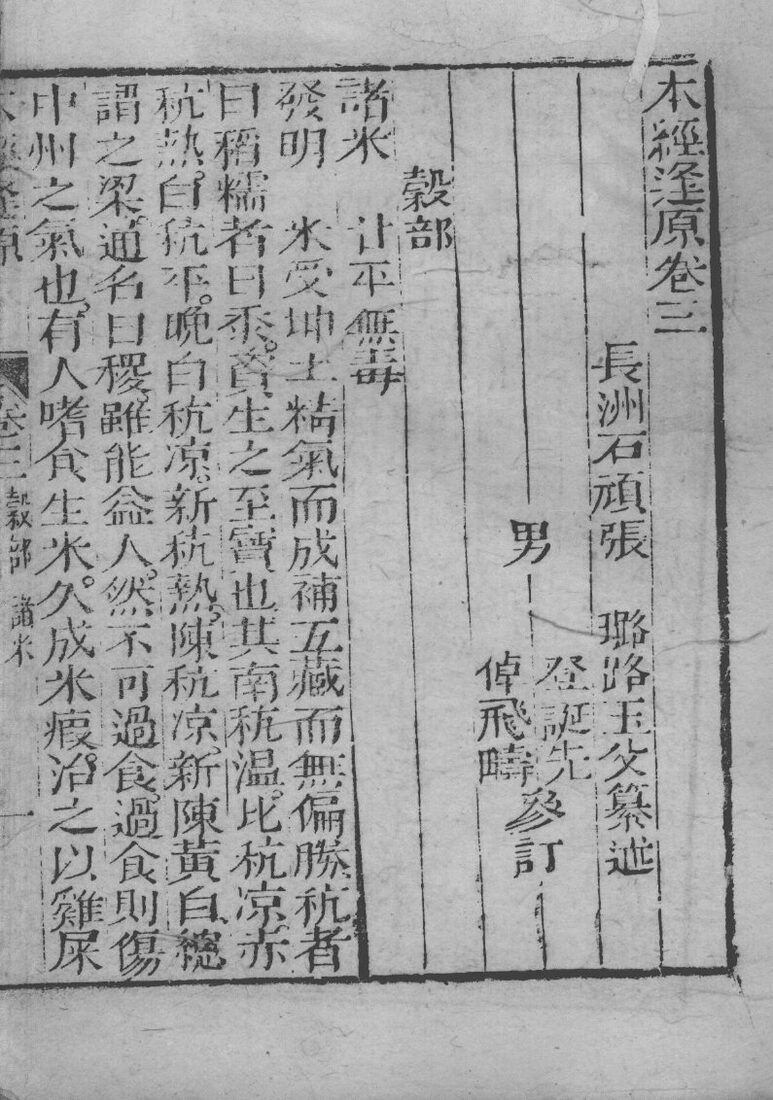 本經逢原卷三
長洲石頑張　璐路玉父纂述
男　登誕先
倬飛疇
參訂
榖部
諸米　甘平無毒
發明　米受坤土精氣而成補五藏而無偏勝秔者
曰稻糯者曰黍資生之至寶也其南秔温比秔凉赤
秔熱。白秔平。晚白秔凉。新秔熱。陳秔凉新陳黃白總
謂之粱通名曰稷。雖能益人。然不可過食。過食則傷
中州之氣也。有人嗜食生米。久成米瘕。治之以雞屎
本經逢原　卷三 榖部　諸米　一